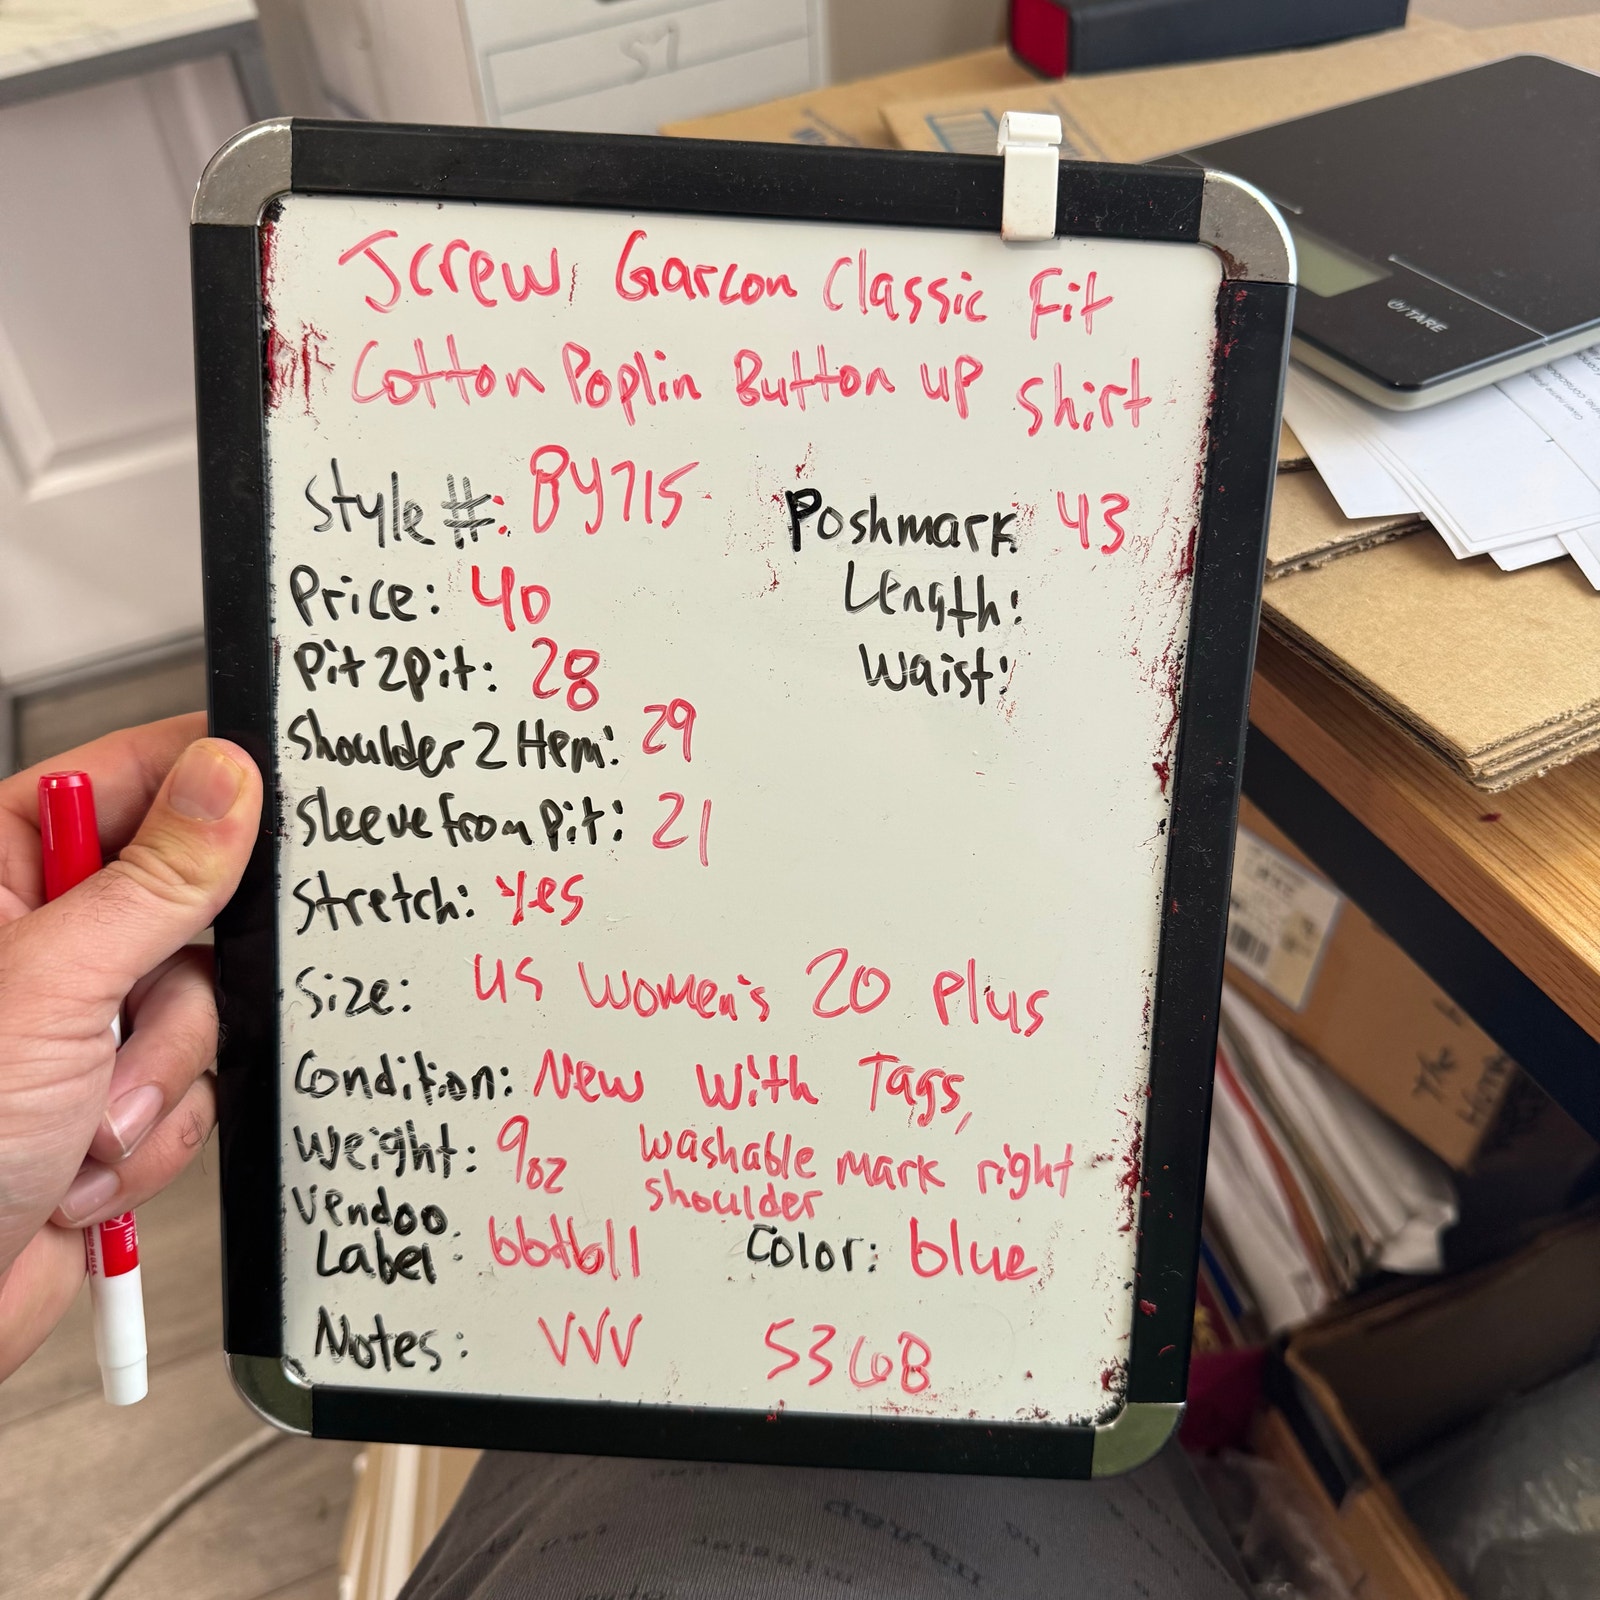 Jcrew, Garcon Classic Fit
Cotton Poplin Button up Shirt
Style #: BY715
Poshmark 43
Price: 40
Length:
Pit 2 pit: 28
Waist:
Shoulder 2 Hem: 29
Sleeve from pit: 21
Stretch: Yes
Size: US Women's 20 Plus
Condition: New With Tags,
washable mark right
shoulder
Weight: 9oz
Vendoo
Label: bbtb11
Color: blue
Notes: VVV 536B
TARE
57